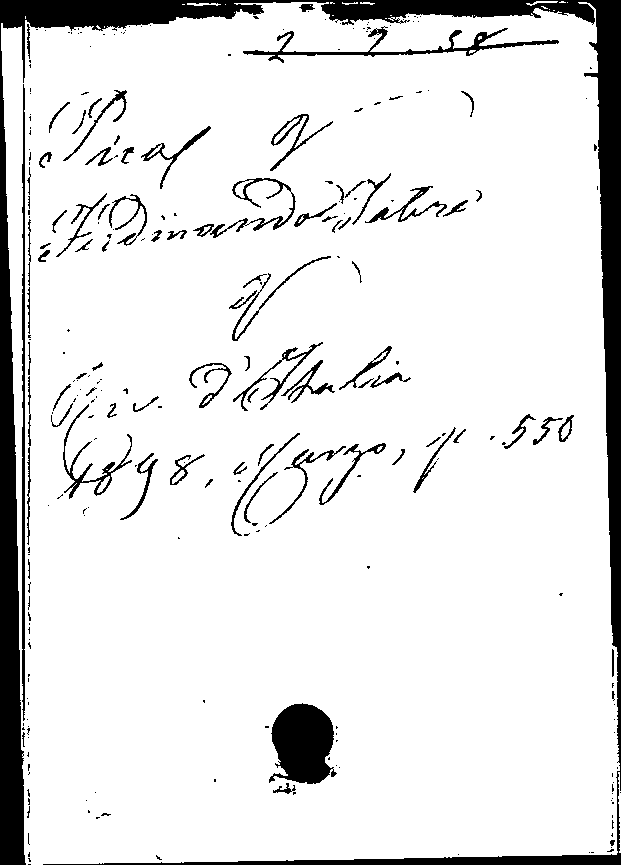 2 7.58
Pica, V
Ferdinando Fabre
V
Riv. d'Italia
1898, Marzo, p. 550